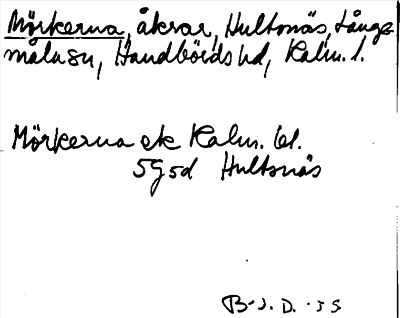 Mörkerna, åkrar, Hultsnäs, Långe-
måla sn, Handbörds hd, Kalm. l.
Mörkerna ek Kalm. bl.
5G5d Hultsnäs
B-J. D. -55